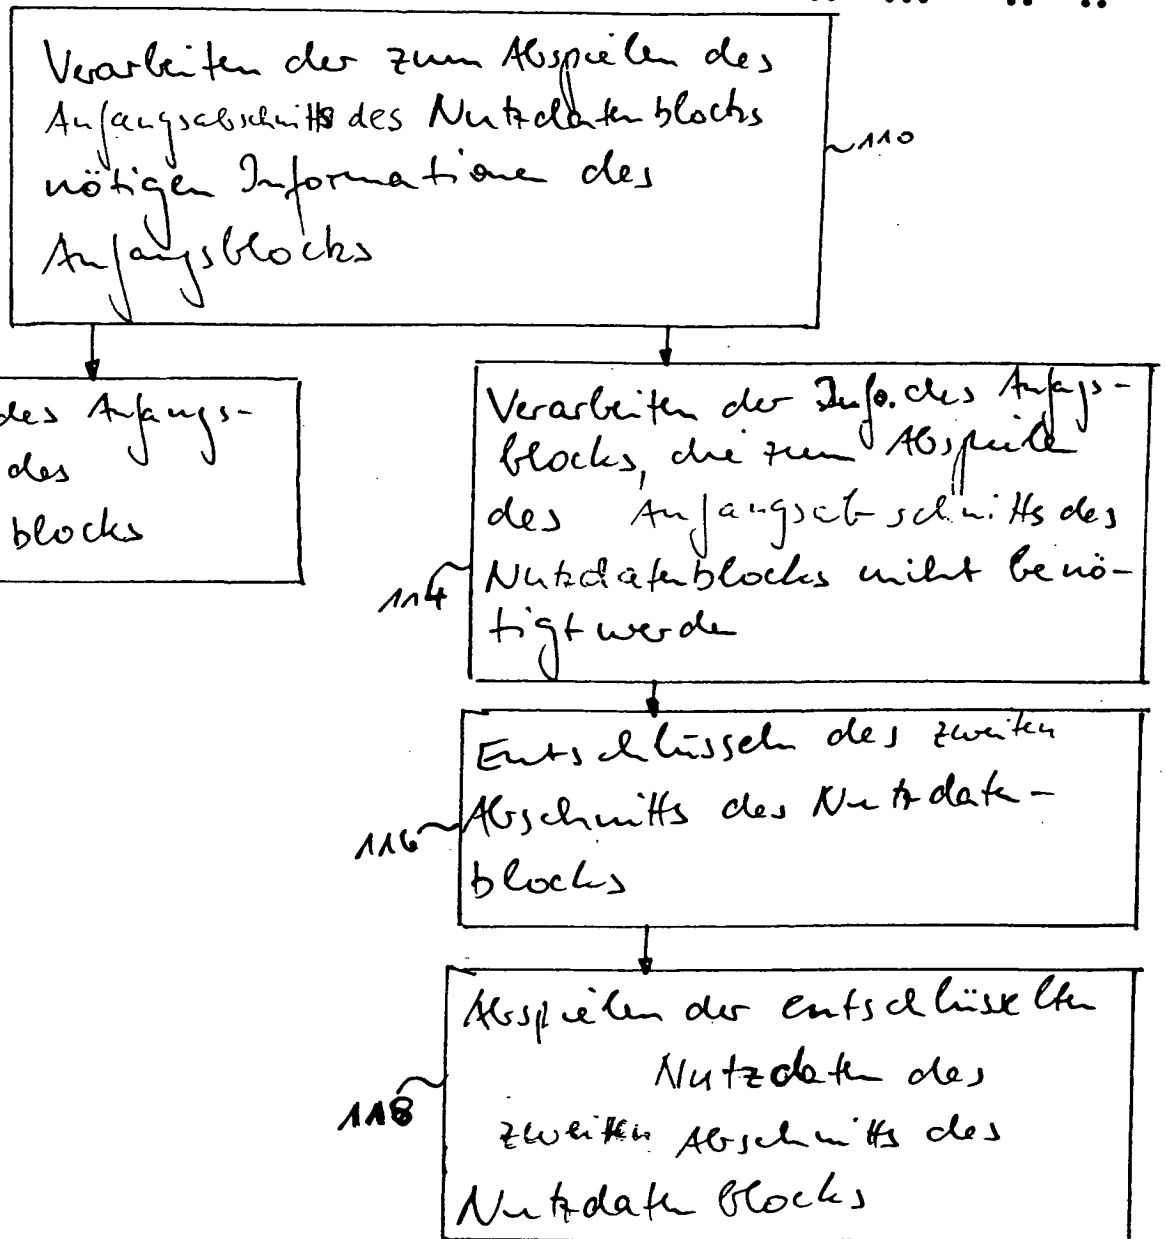 Verarbeiten der zum Abspielen des
Anfangsabschnitts des Nutzdatenblocks
nötigen Informationen des
Anfangsblocks
110
des Anfangs-
des
blocks
Verarbeiten der Info. des Anfangs-
blocks, die zum Abspielen
des Anfangsabschnitts des
Nutzdatenblocks nicht benö-
tigt werden
114
Entschlüsseln des zweiten
Abschnitts des Nutzdaten-
blocks
116
Abspielen der entschlüsselten
Nutzdaten des
zweiten Abschnitts des
Nutzdatenblocks
118